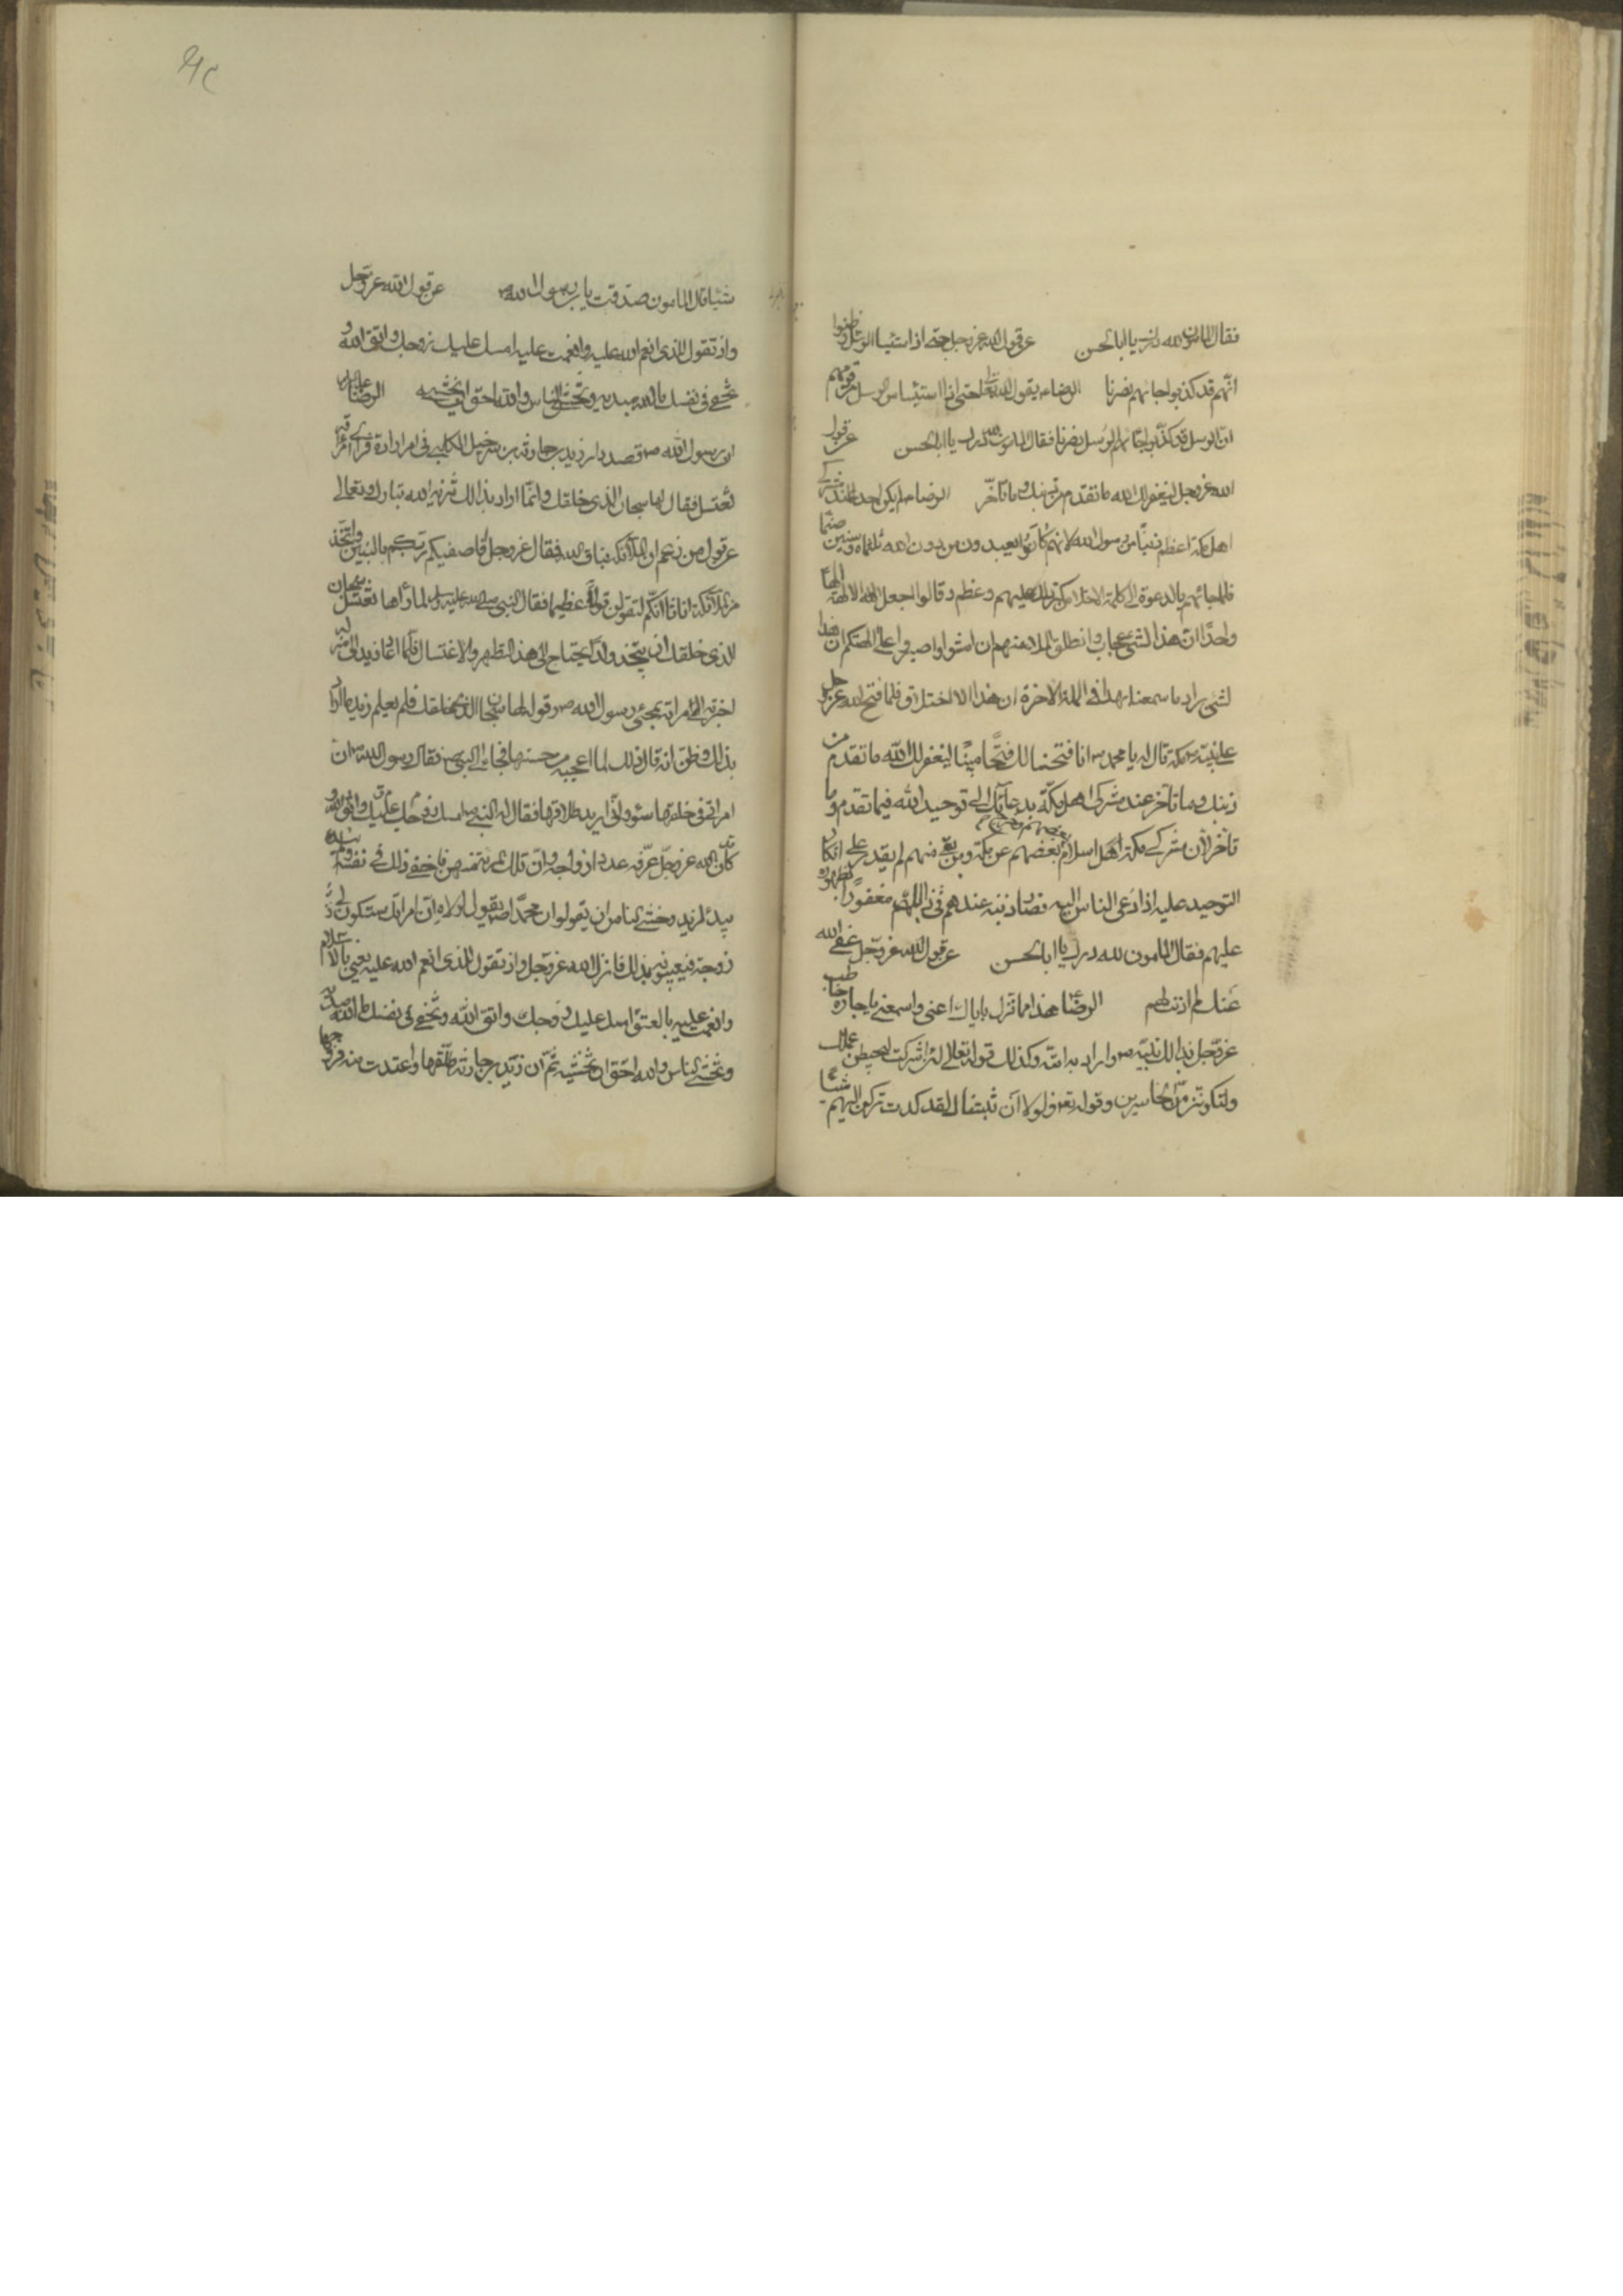 فقال المامون لله درك يا ابا الحسن عن قول الله عز وجل حتى اذا استيئس الرسل وظنوا
انهم قد كذبوا جائهم نصرنا الرضا يقول الله تعالى حتى اذا استيئس الرسل من قومهم
ان الرسل قد كذبوا جاء الرسل نصرنا فقال المامون لله درك يا ابا الحسن عن قول
الله عز وجل ليغفر لك الله ما تقدم من ذنبك وما تاخر الرضا لم يكن احد عند مشركى
اهل مكة اعظم ذنبا من رسول الله لانهم كانوا يعبدون من دون الله ثلثمأة وستين صنما
فلما جائهم بالدعوة الى كلمة الاخلاص كبر ذلك عليهم وعظم وقالوا اجعل الالهة الها
واحدا ان هذا لشئ عجاب وانطلق الملا منهم ان امشوا واصبروا على الهتكم ان هذا
لشئ يراد ما سمعنا بهذا فى الملة الاخرة ان هذا الا اختلاق فلما فتح الله عز وجل
على نبيه مكة قال له يا محمد انا فتحنا لك فتحا مبينا ليغفر لك الله ما تقدم من
ذنبك وما تاخر عند مشركى اهل مكة بدعائك الى توحيد الله فيما تقدم وما
تأخر لان مشركى مكة اسلم بعضهم وخرج بعضهم عن مكة ومن بقى منهم لم يقدر على انكار
التوحيد عليه اذا دعى الناس اليه فصار ذنبه عندهم فى ذلك مغفورا بظهوره
عليهم فقال المامون لله درك يا ابا الحسن عن قول الله عز وجل عفى الله
عنك لم اذنت لهم الرضا هذا مما نزل باياك اعنى واسمعى يا جاره خاطب
عز وجل بذالك نبيه واراد به امته وكذلك قوله تعالى لئن اشركت ليحبطن عملك
ولتكونن من الخاسرين وقوله تعالى ولولا ان ثبتناك لقد كدت تركن اليهم شيئا
شيئا قال المامون صدقت يا بن رسول الله عن قول الله عز وجل
واذ تقول للذى انعم الله عليه وانعمت عليه امسك عليك زوجك واتق الله و
تخفى فى نفسك ما الله مبديه وتخشى الناس والله احق ان تخشيه الرضا
ان رسول الله قصد دار زيد بن حارثة بن شرحيل الكلبى فى امر اراده فراى امرأته
تغتسل فقال لها سبحان الذى خلقك وانما اراد بذالك تنزيه الله تبارك وتعالى
عن قول من زعم ان الملائكة بنات الله فقال عز وجل افاصفيكم ربكم بالبنين واتخذ
من الملائكة اناثا انكم لتقولون قولا عظيما فقال النبى صلى الله عليه لما راها تغتسل سبحان
الذى خلقك ان يتخذ ولدا يحتاج الى هذا التطهر والاغتسال فلما عاد زيد الى منزله
اخبرته امراته بمجئ رسول الله وقوله لها سبحان الذى خلقك فلم يعلم زيد ما اراد
بذلك وظن انه قال ذلك لما اعجبه من حسنها فجاء الى النبى فقال يا رسول الله ان
امراتى فى خلقها سوء وانى اريد طلاقها فقال له النبى امسك عليك زوجك واتق الله و
كان الله عز وجل عرفه عدد ازواجه وان تلك المرأة منهن فاخفى ذلك فى نفسه ولم
يبده لزيد وخشى الناس ان يقولوا ان محمدا يقول لمولاه ان امراتك ستكون لى
زوجة فيعيبونه بذلك فانزل الله عز وجل واذ تقول للذى انعم الله عليه يعنى بالاسلام
وانعمت عليه بالعتق امسك عليك زوجك واتق الله وتخفى فى نفسك ما الله مبديه
وتخشى الناس والله احق ان تخشيه ثم ان زيد بن حارثة طلقها واعتدت منه فزوجها